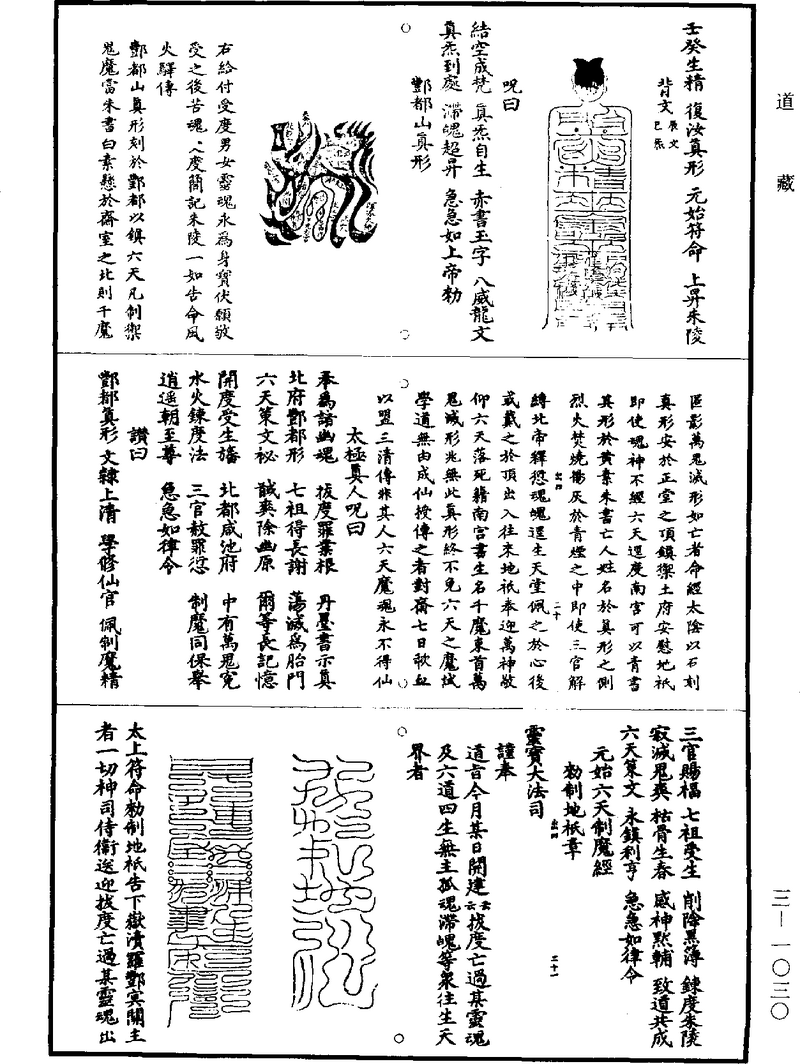 道藏
壬癸生精　復汝真形　元始符命　上昇朱陵
背文 辰文 已炁
呪曰
結空成梵　真炁自生　赤書玉字　八威龍文
真炁到處　滯魄超昇　急急如上帝勑
酆都山真形
右給付受度男女靈魂永為身寶伏願敬
受之後苦魂人度簡記朱陵一如告命風
火驛傳
酆都山真形刻於酆都以鎮六天凡制禦
鬼魔當朱書白素懸於齋室之北則千魔
匿影萬鬼滅形如亡者命經太陰以石刻
真形安於正堂之頂鎮禦土府安慰地祇
即使魂神不經六天還度南宮可以青書
其形於黃素朱書亡人姓名於真形之側
烈火焚燒揚灰於青煙之中即使三官解
縛北帝釋愆魂魄還生天堂佩之於心後
或戴之於頂出入往來地祇奉迎萬神敬
仰六天落死籍南宮書生名千魔束首萬
鬼滅形兆無此真形終不免六天之魔試
學道無由成仙授傳之者對齋七日歃血
以盟三清傳非其人六天魔魂永不得仙
太極真人呪曰
奉為諸幽魂　拔度罪業根　丹墨書示真
北府酆都形　七祖得長謝　蕩滅為胎門
六天策文祕　誡爽除幽原　爾等長記憶
開度受生籓　北都咸池府　中有萬鬼寃
水火鍊度法　三官赦罪愆　制魔同保舉
逍遥朝至尊　急急如律令
讚曰
酆都真形　文隸上清　學修仙官　佩制魔精
三官賜福　七祖受生　削除黑簿　鍊度朱陵
寂滅鬼爽　枯骨生春　感神默輔　致道共成
六天策文　永鎮利亨　急急如律令
元始六天制魔經
勑制地祇章
靈寶大法司
謹奉
道旨今月某日開建云云拔度亡過某靈魂
及六道四生無主孤魂滯魄等衆往生天
界者
太上符命勑制地祇告下嶽瀆羅酆冥關主
者一切神司侍衛送迎拔度亡過某靈魂出
三—一〇三〇